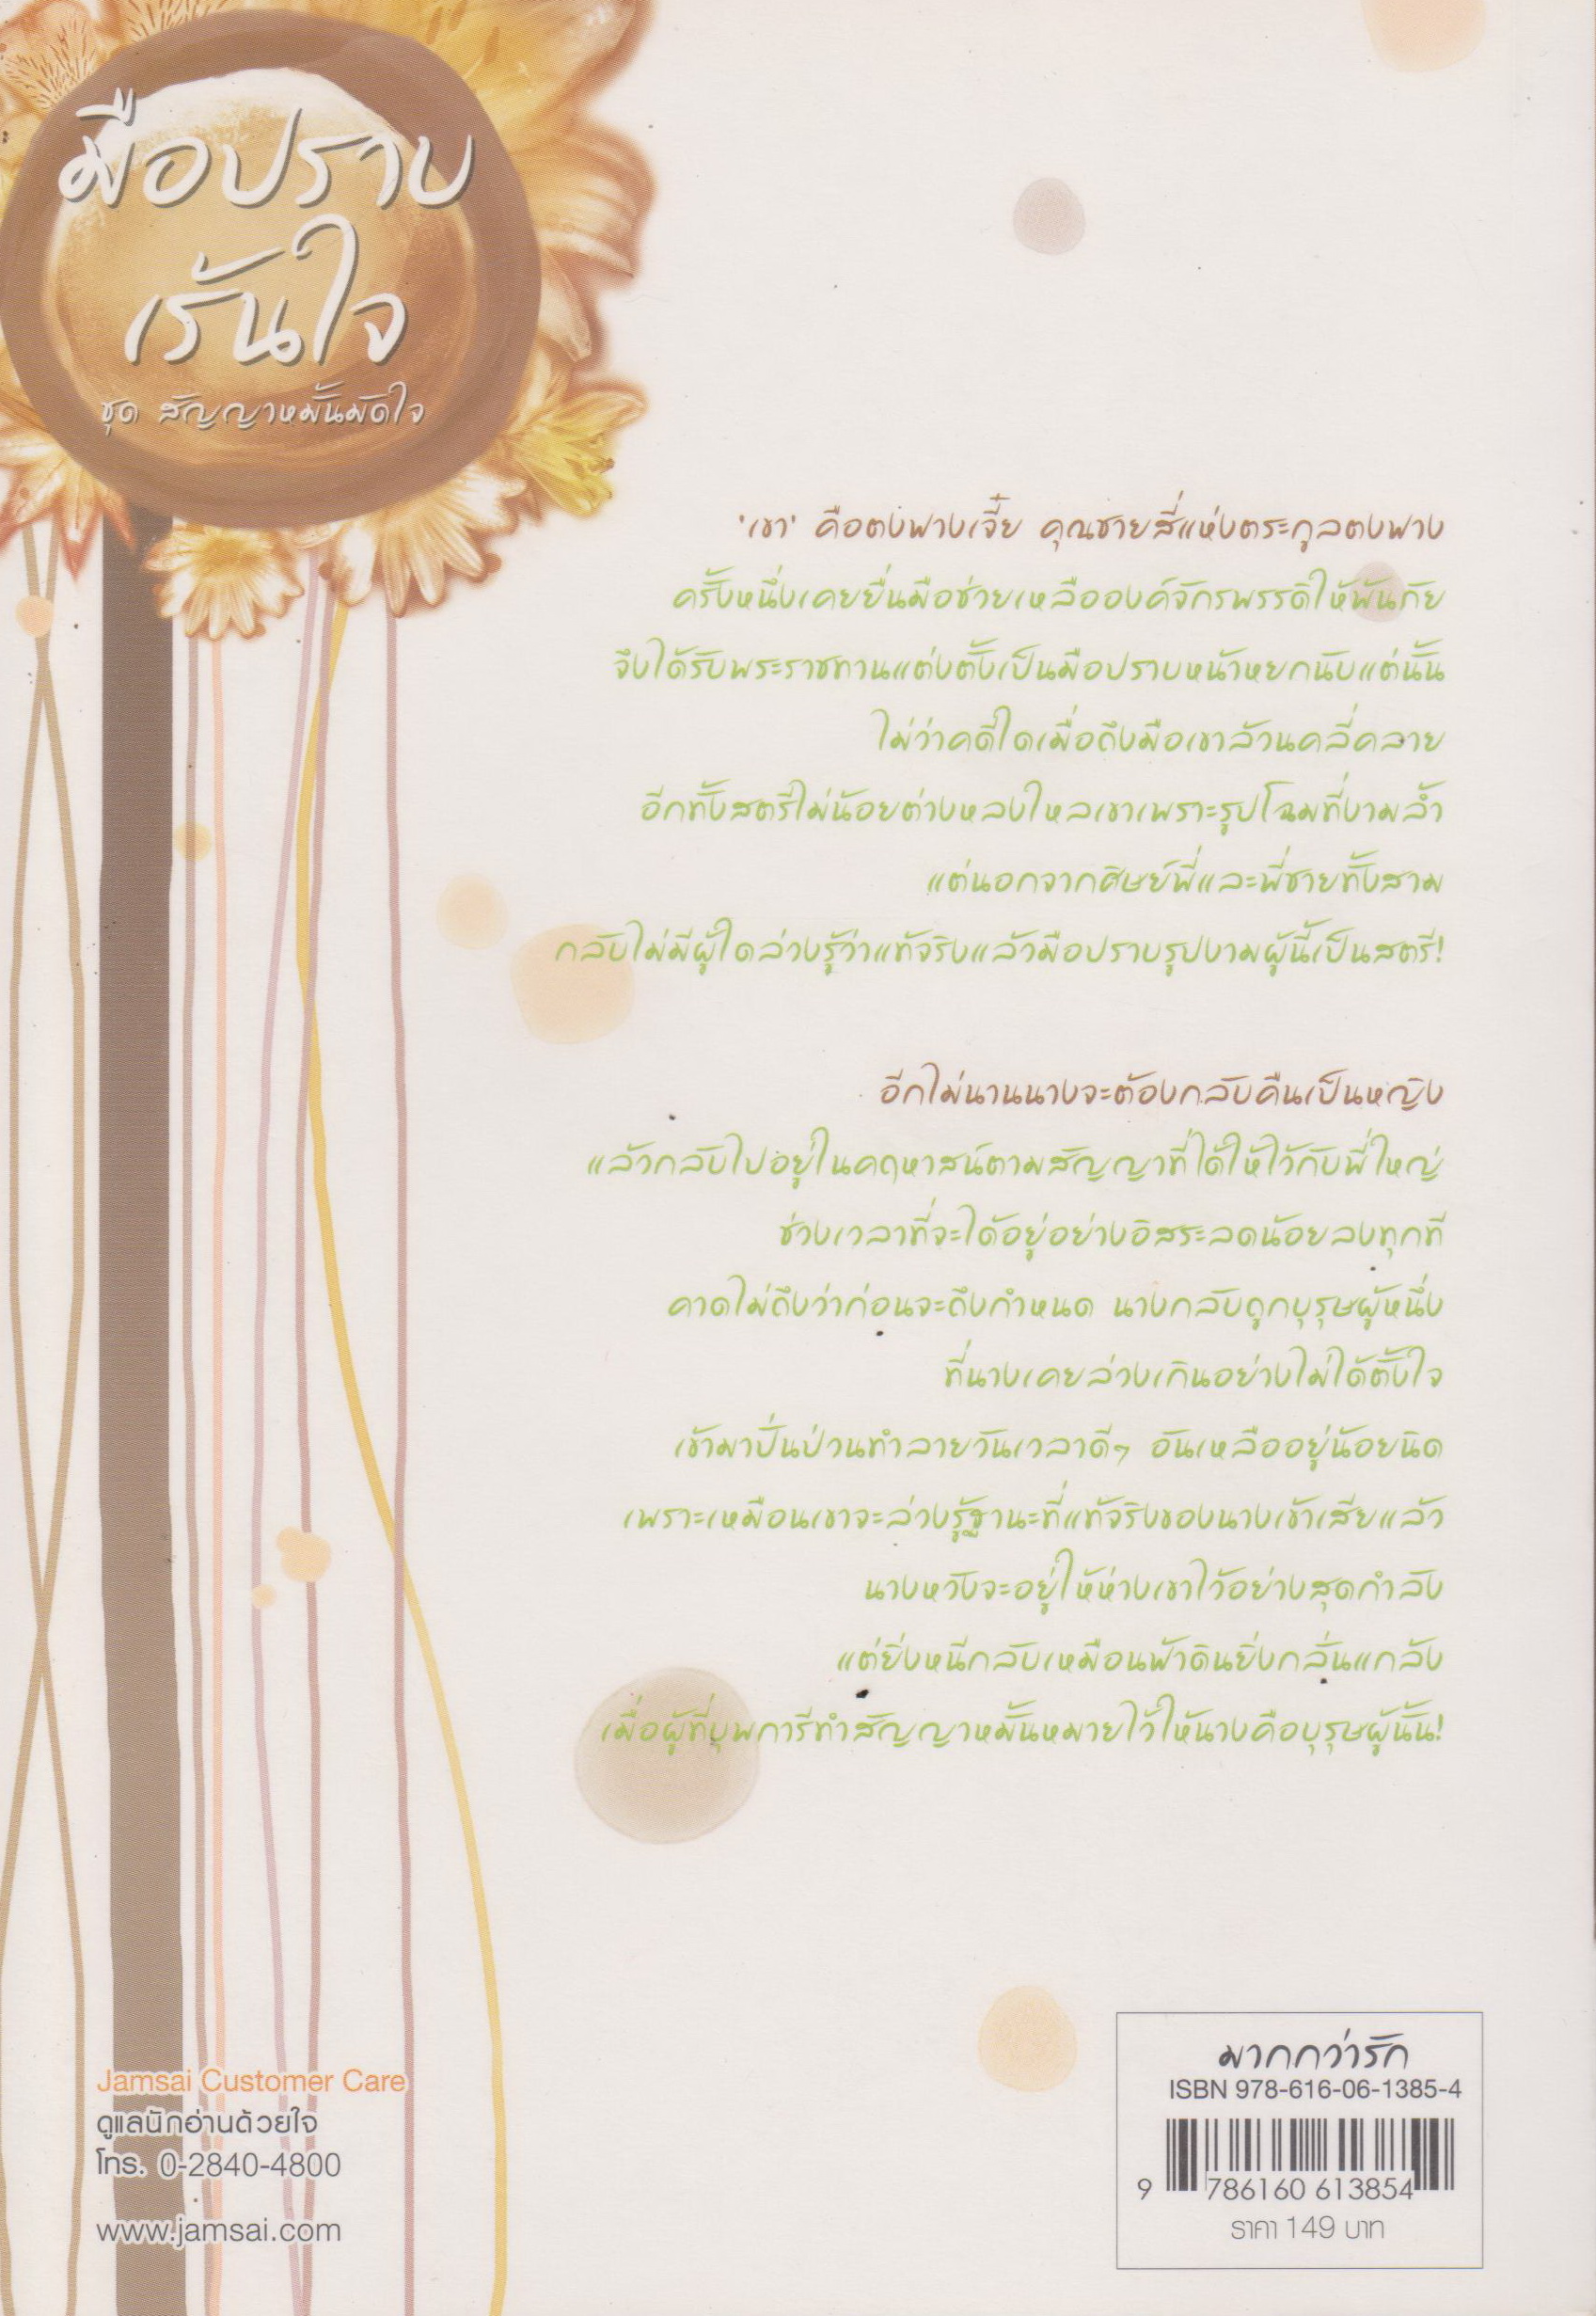 มือปราบ
เร้นใจ
ชุด สัญญาหมั้นมัดใจ
'เขา' คือตงฟางเจี๋ย คุณชายสี่แห่งตระกูลตงฟาง
ครั้งหนึ่งเคยยื่นมือช่วยเหลือองค์จักรพรรดิให้พ้นภัย
จึงได้รับพระราชทานแต่งตั้งเป็นมือปราบหน้าหยกนับแต่นั้น
ไม่ว่าคดีใดเมื่อถึงมือเขาล้วนคลี่คลาย
อีกทั้งสตรีไม่น้อยต่างหลงใหลเขาเพราะรูปโฉมที่งามล้ำ
แต่นอกจากศิษย์พี่และพี่ชายทั้งสาม
กลับไม่มีผู้ใดล่วงรู้ว่าแท้จริงแล้วมือปราบรูปงามผู้นี้เป็นสตรี!
อีกไม่นานนางจะต้องกลับคืนเป็นหญิง
แล้วกลับไปอยู่ในคฤหาสน์ตามสัญญาที่ได้ให้ไว้กับพี่ใหญ่
ช่วงเวลาที่จะได้อยู่อย่างอิสระลดน้อยลงทุกที
คาดไม่ถึงว่าก่อนจะถึงกำหนด นางกลับถูกบุรุษผู้หนึ่ง
ที่นางเคยล่วงเกินอย่างไม่ได้ตั้งใจ
เข้ามาปั่นป่วนทำลายวันเวลาดีๆ อันเหลืออยู่น้อยนิด
เพราะเหมือนเขาจะล่วงรู้ฐานะที่แท้จริงของนางเข้าเสียแล้ว
นางหวังจะอยู่ให้ห่างเขาไว้อย่างสุดกำลัง
แต่ยิ่งหนีกลับเหมือนฟ้าดินยิ่งกลั่นแกล้ง
เมื่อผู้ที่บุพการีทำสัญญาหมั้นหมายไว้ให้นางคือบุรุษผู้นั้น!
Jamsai Customer Care
ดูแลนักอ่านด้วยใจ
โทร. 0-2840-4800
www.jamsai.com
มากกว่ารัก
ISBN 978-616-06-1385-4
9 786160 613854
ราคา 149 บาท